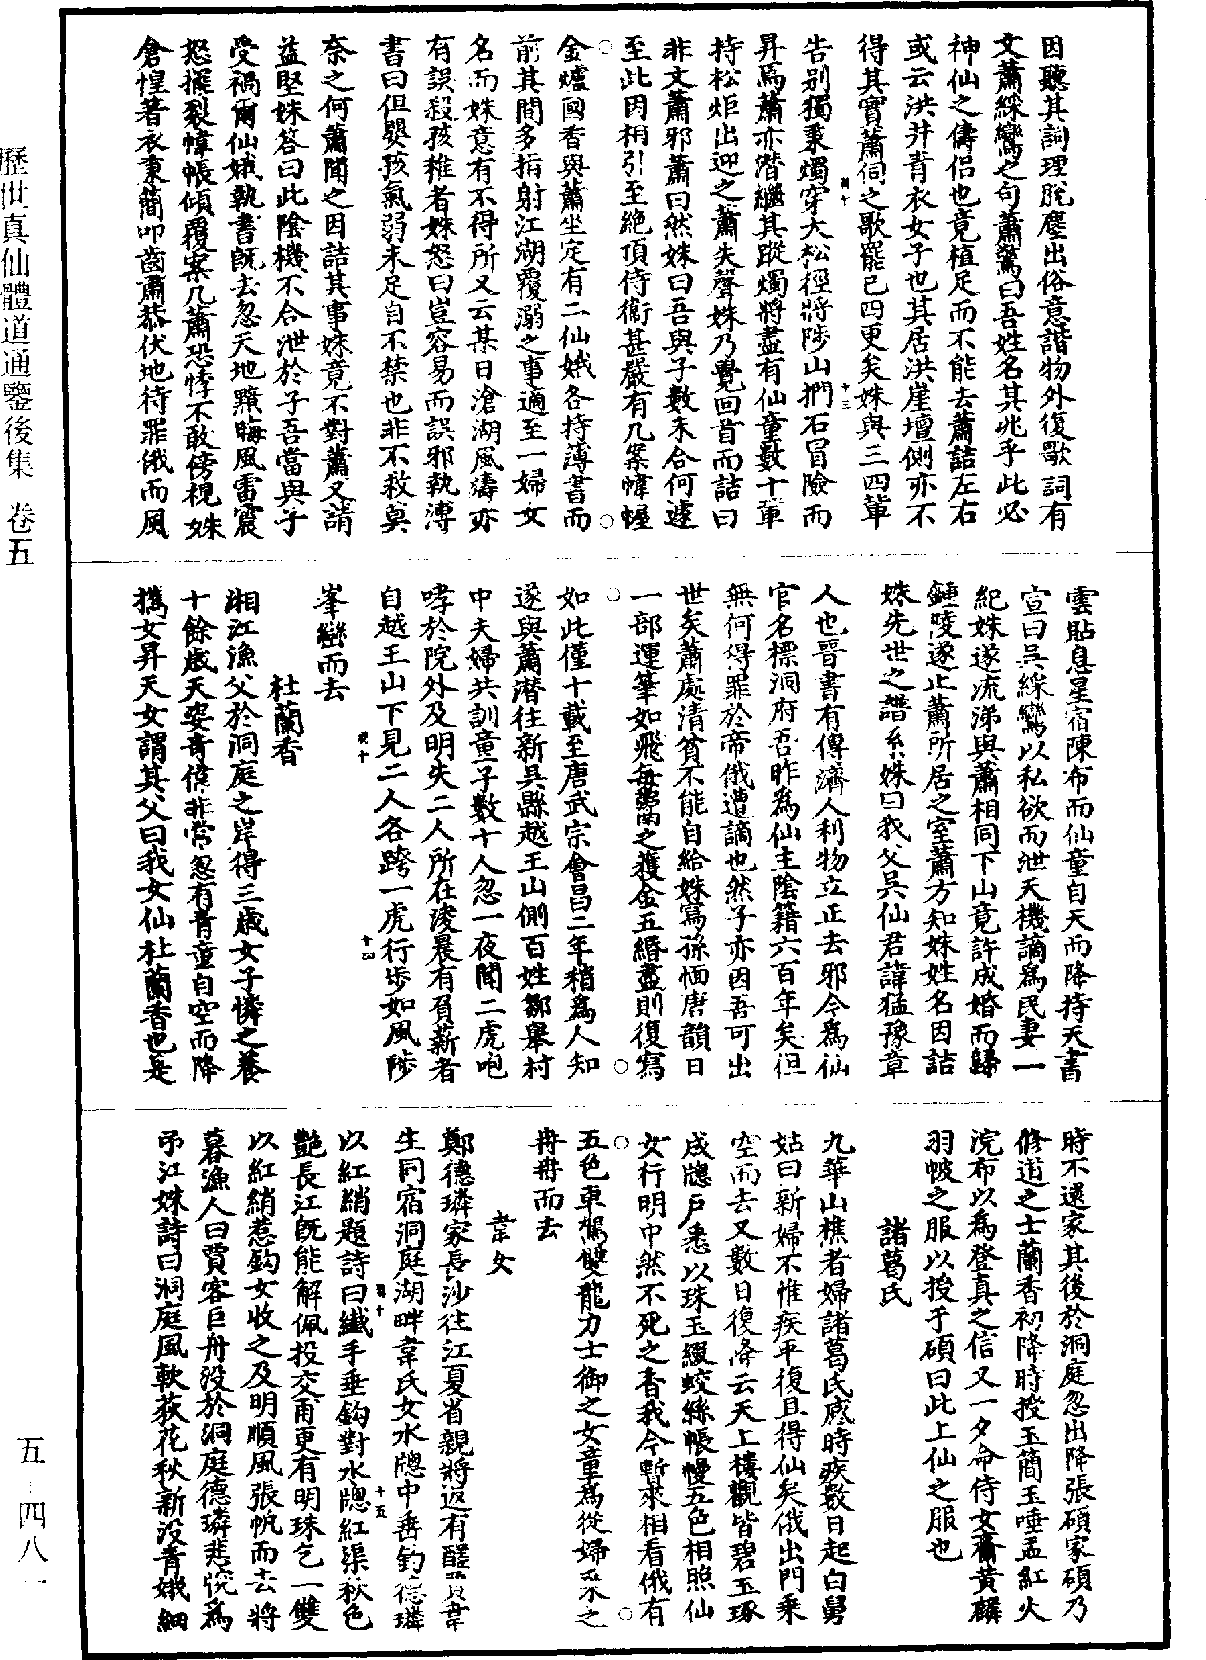 因聽其詞理脫塵出俗意諧物外復歌詞有
文蕭綵鸞之句蕭驚曰吾姓名其兆乎此必
神仙之儔侶也竟植足而不能去蕭詰左右
或云洪井青衣女子也其居洪崖壇側亦不
得其實蕭伺之歌罷已四更矣姝與三四輩
告別獨秉燭穿大松徑將陟山捫石冒險而
昇焉蕭亦潛繼其蹤燭將盡有仙童數十輩
持松炬出迎之蕭失聲姝乃覺回首而詰曰
非文蕭邪蕭曰然姝曰吾與子數未合何遽
至此因相引至絕頂侍衛甚嚴有几案幃幄
金爐國香與蕭坐定有二仙娥各持薄書而
前其間多指射江湖覆溺之事適至一婦女
名而姝意有不得所又云某日滄湖風濤亦
有誤殺孩稚者姝怒曰豈容易而誤邪執溥
書曰但嬰孩氣弱未足自不禁也非不救莫
奈之何蕭聞之因詰其事姝竟不對蕭又請
益堅姝答曰此陰機不合泄於子吾當與子
受禍爾仙娥執書既去忽天地黯晦風雷震
怒擺裂幃帳傾覆案几蕭恐悸不敢傍視姝
倉惶著衣秉簡叩齒肅恭伏地待罪俄而風
雲貼息星宿陳布而仙童自天而降持天書
宣曰吳綵鸞以私欲而泄天機謫為民妻一
紀姝遂流涕與蕭相同下山竟許成婚而歸
鍾陵遂止蕭所居之室蕭方知姝姓名因詰
姝先世之譜系姝曰我父吳仙君諱猛豫章
人也晉書有傳濟人利物立正去邪今為仙
官名標洞府吾昨為仙主陰籍六百年矣但
無何得罪於帝俄遭謫也然子亦因吾可出
世矣蕭處清貧不能自給姝寫孫愐唐韻日
一部運筆如飛每鬻之獲金五緡盡則復寫
如此僅十載至唐武宗會昌二年稍為人知
遂與蕭潛往新吳縣越王山側百姓鄒舉村
中夫婦共訓童子數十人忽一夜聞二虎咆
哮於院外及明失二人所在淩晨有負薪者
自越王山下見二人各跨一虎行步如風陟
峯巒而去
杜蘭香
湘江漁父於洞庭之岸得三歲女子憐之養
十餘歲天姿奇偉非常忽有青童自空而降
攜女昇天女謂其父曰我女仙杜蘭香也是
時不還家其後於洞庭忽出降張碩家碩乃
修道之士蘭香初降時授玉簡玉唾盂紅火
浣布以為登真之信又一夕命侍女齎黃麟
羽帔之服以授于碩曰此上仙之服也
諸葛氏
九華山樵者婦諸葛氏感時疾數日起白舅
姑曰新婦不惟疾平復且得仙矣俄出門乘
空而去又數日復降云天上樓觀皆碧玉琢
成牎戶悉以珠玉綴蛟絲帳幔五色相照仙
女行明中然不死之香我今暫來相看俄有
五色車駕雙龍力士御之女童為從婦乘之
冉冉而去
韋女
鄭德璘家長沙往江夏省親將返有醝賈韋
生同宿洞庭湖畔韋氏女水牎中垂釣德璘
以紅綃題詩曰纖手垂鈎對水牎紅渠秋色
艷長江既能解佩投交甫更有明珠乞一雙
以紅綃惹鈎女收之及明順風張帆而去將
暮漁人曰賈客巨舟沒於洞庭德璘悲惋為
弔江姝詩曰洞庭風軟荻花秋新沒青娥細
歷世真仙體道通鑒後集 卷五
五–四八一